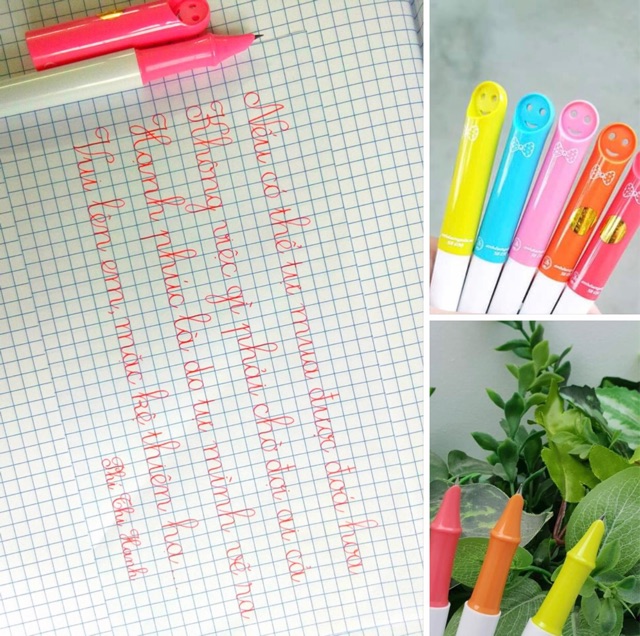 Nếu có thể tự mua được đoá hoa
Không việc gì phải chờ đợi ai cả
Hạnh phúc là do tự mình vẽ ra
Vui lên em, mặc kệ thiên hạ...
Thị Hạnh